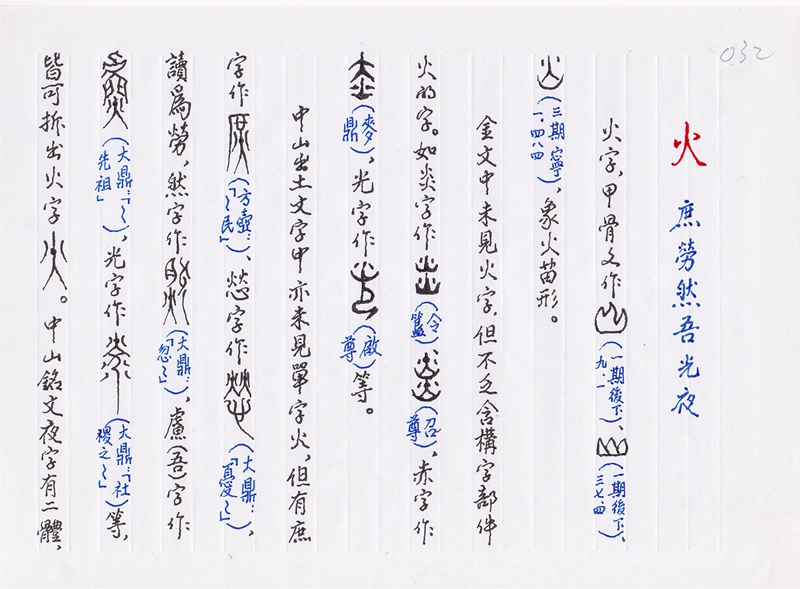 032
火 庶勞然吾光夜
火字，甲骨文作（一期後下九．一）、（一期後下三七．四）、
（三期寧一．四八四），象火苗形。
金文中未見火字，但不乏含構字部件
火的字。如炎字作（令簋）（召尊），赤字作
（麥鼎），光字作（啟尊）等。
中山出土文字中亦未見單字火，但有庶
字作（方壺：「～民」）、字作（大鼎：「～」），
讀爲勞，然字作（大鼎：「忽～」），（吾）字作
（大鼎：「～先祖」），光字作（大鼎：「社稷之～」）等，
皆可拆出火字。中山銘文夜字有二體，